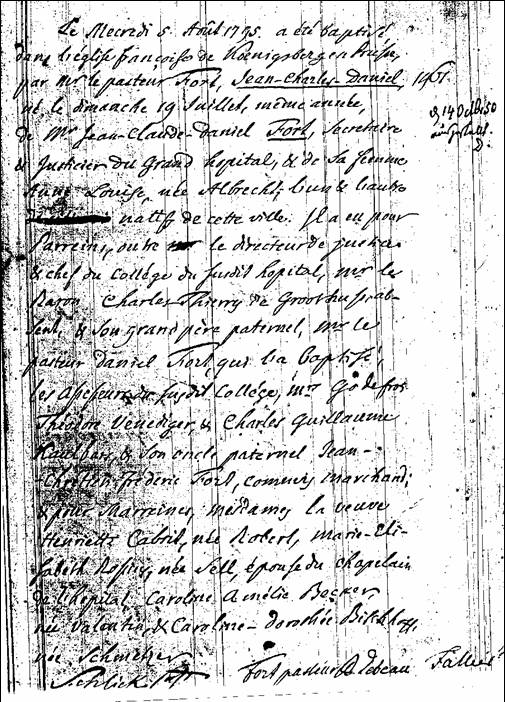 Le Mecredi 5 Août 1795. a été baptisé
dans l'église françoise de Koenigsberg en Prusse,
par Mr le pasteur Fort, Jean-Charles-Daniel,
né le dimanche 19 Juillet, même année,
de Mr Jean-Claude-Daniel Fort, Secretaire
& Justicier du Grand hopital, & de sa femme
Anne Louise, née Albrecht, l'un & l'autre
natifs de cette ville. Il a eu pour
Parreins, outre le directeur de justice
& chef du Collége du susdit hopital, Mr le
Baron Charles Thierry de Groothuss ab-
sent, & son grand père paternel, Mr le
pasteur Daniel Fort qui l'a baptisé,
les Assesseurs du susdit Collége, Mrs Godefroi
Théodore Venediger, & Charles Guillaume
& son oncle paternel Jean-
Chretien Fréderic Fort, commis marchand;
& pour Marreines, mesdames la veuve
Henriette Cabrit, née Robert, Marie-Eli-
sabeth née Sell, épouse du chapelain
de l'hôpital, Caroline Amélie Becker
née Valentin, & Caroline-Dorothée Bischhoff,
née
Fort pasteur